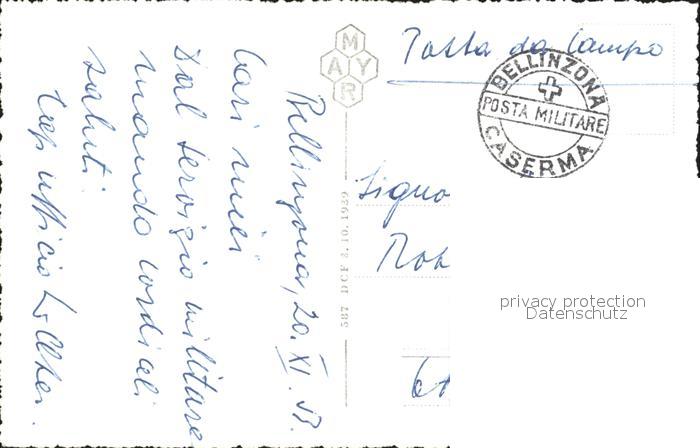 Posta da Campo
BELLINZONA
POSTA MILITARE
CASERMA
MAYR
Bellinzona, 20. XI. 53.
Cari miei
Dal servizio militare
mando cordiali
saluti.
ufficio
Signo
Rob
687 DCF. 2. 10. 1939
privacy protection
Datenschutz